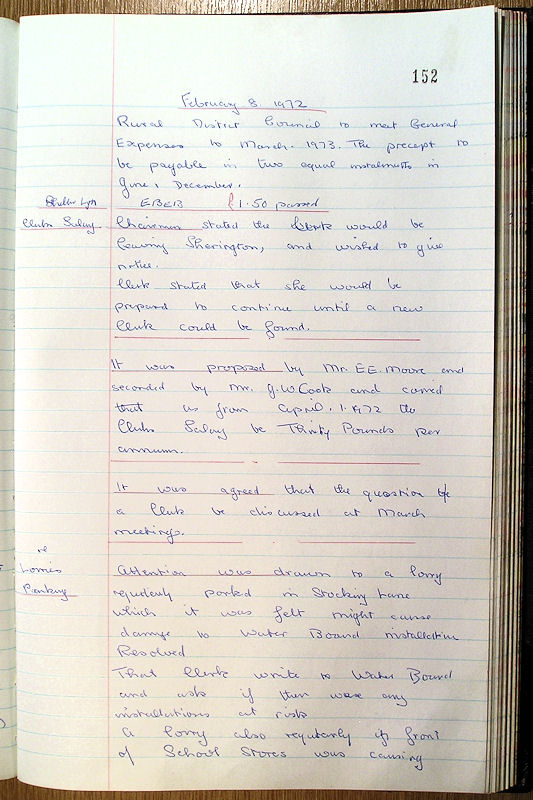 152
February 8. 1972
Rural District Council to meet General
Expenses to March. 1973. The precept to
be payable in two equal instalments in
June & December.
EBEB £1.50 passed
Clerks Salary
Chairman stated the Clerk would be
leaving Sherington, and wished to give
notice.
Clerk stated that she would be
prepared to continue until a new
Clerk could be found.
It was proposed by Mr. E.E. Moore and
seconded by Mr. J.W. Cook and carried
that as from April. 1. 1972 the
Clerks Salary be Thirty Pounds per
annum.
It was agreed that the question of
a Clerk be discussed at March
meetings.
re
Lorries
Parking
Attention was drawn to a lorry
regularly parked in Stocking Lane
which it was felt might cause
damage to Water Board installation
Resolved
That Clerk write to Water Board
and ask if there were any
installations at risk
A lorry also regularly in front
of School Stores was causing